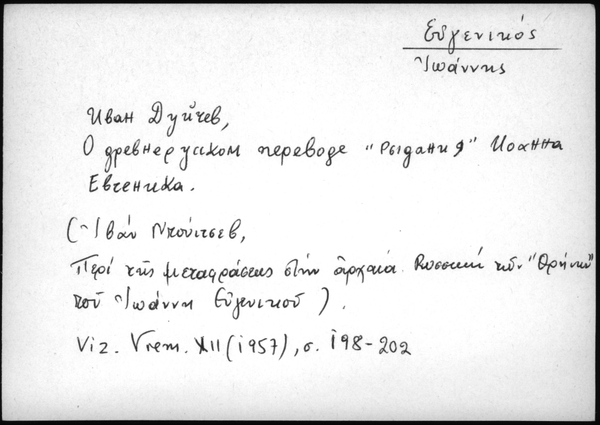 Εὐγενικός
Ἰωάννης
Иван Дуйчев,
О древнерусском переводе "Рыдания" Иоанна
Евгеника.
(Ἰβάν Ντούιτσεβ,
Περί τῆς μεταφράσεως στήν ἀρχαία Ρωσσική τῶν "Θρήνων"
τοῦ Ἰωάννη Εὐγενικοῦ).
Viz. Vrem. XII (1957), σ. 198-202